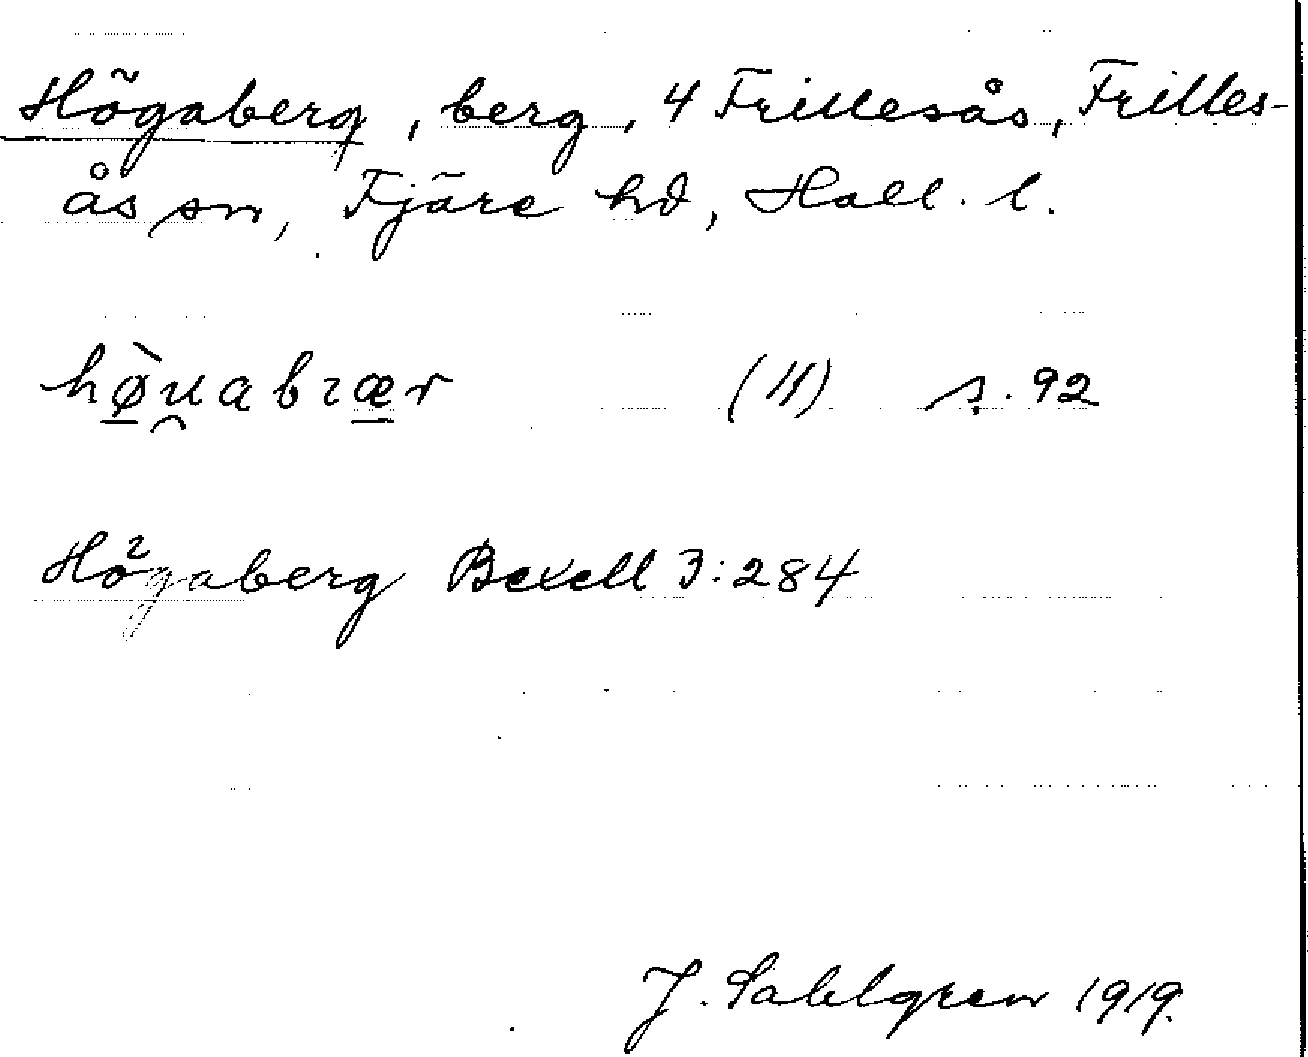 Högaberg, berg, 4 Frillesås, Frilles-
ås sn, Fjäre hd, Hall. l.
hø̠̀u̯abɿæ̠r (11) s. 92
Högaberg Bexell 3:284
J. Sahlgren 1919.